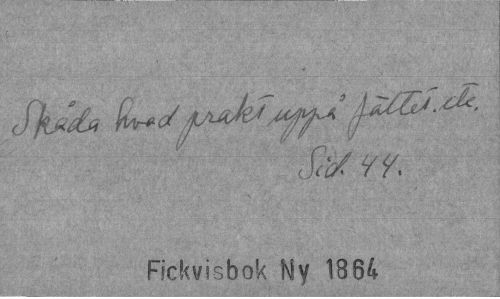 Skåda hvad prakt uppå fältet. etc.
Sid. 44.
Fickvisbok Ny 1864